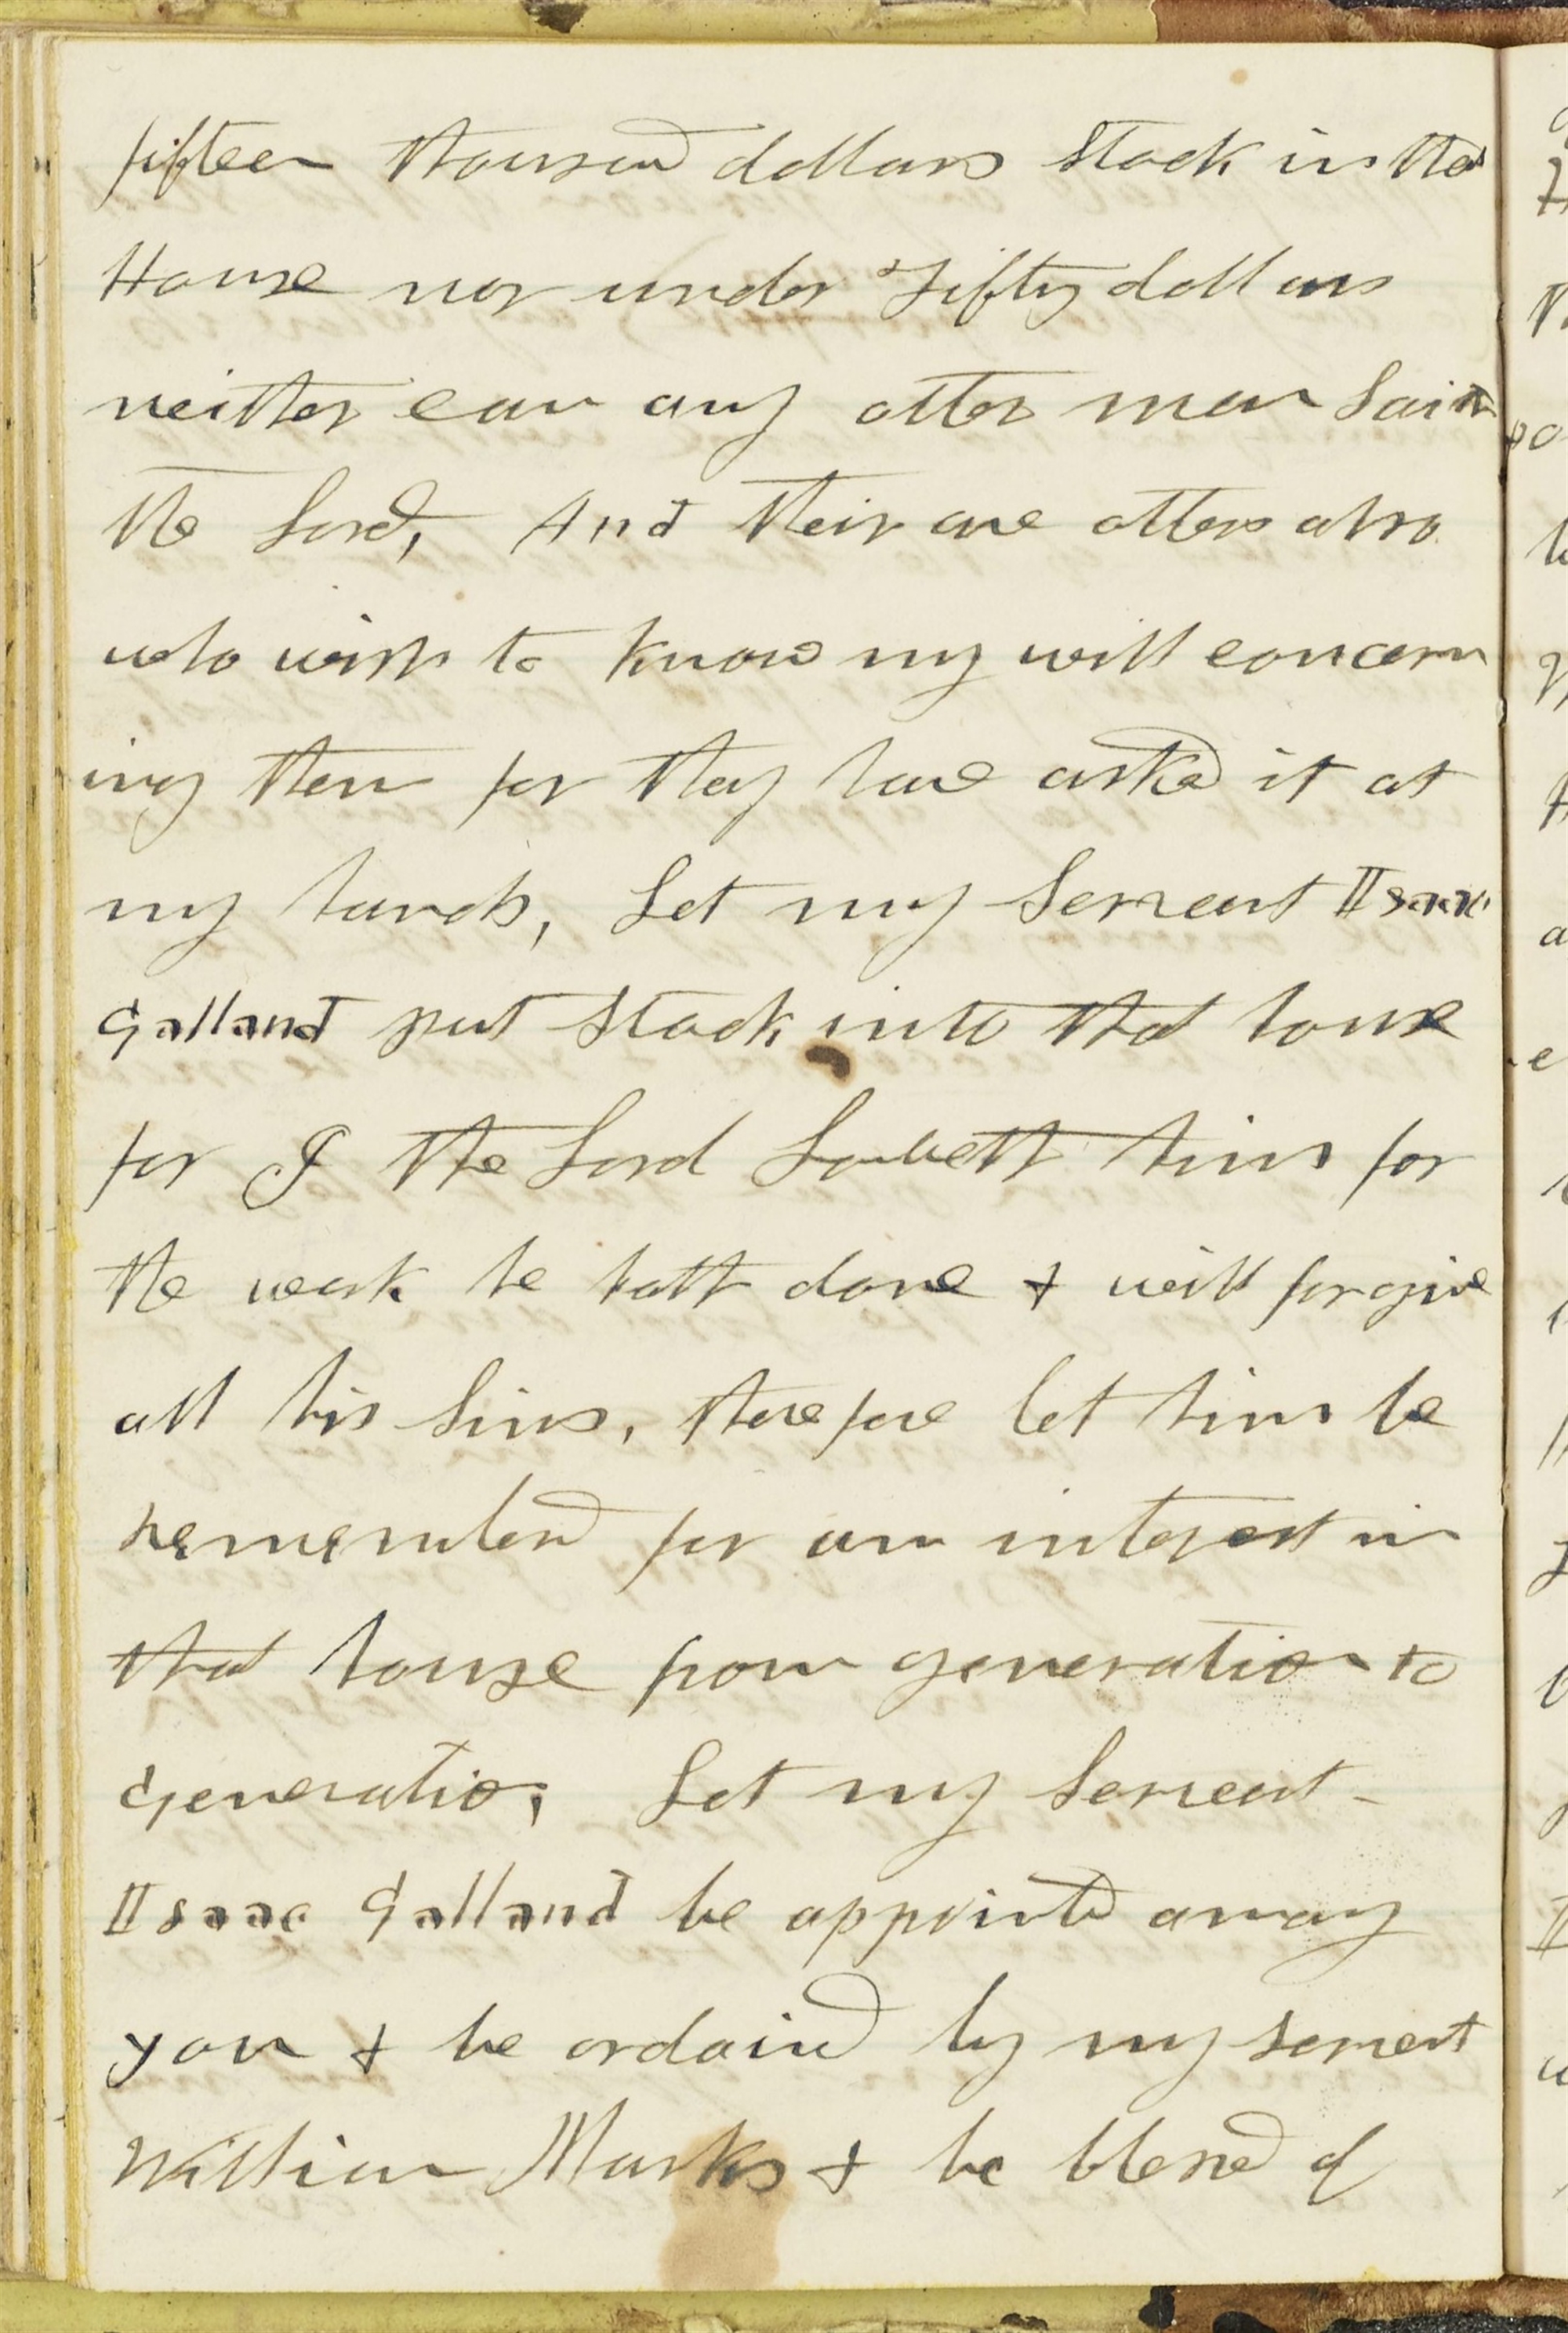 fifteen thousand dollars stock in that
House nor under Fifty dollars
neither can any other man saith
the Lord, And their are others also
who wish to know my will concern
ing them for they have asked it at
my hands, Let my Servent Isaac
Galland put stock into that house
for I the Lord Loveth him for
the work he hath done & will forgive
all his Sins, therefore let him be
rememberd for an interest in
that house from generation to
generatio, Let my Servent
Isaac Galland be appointed among
you & be ordaind by my servent
William Marks & be blessed of